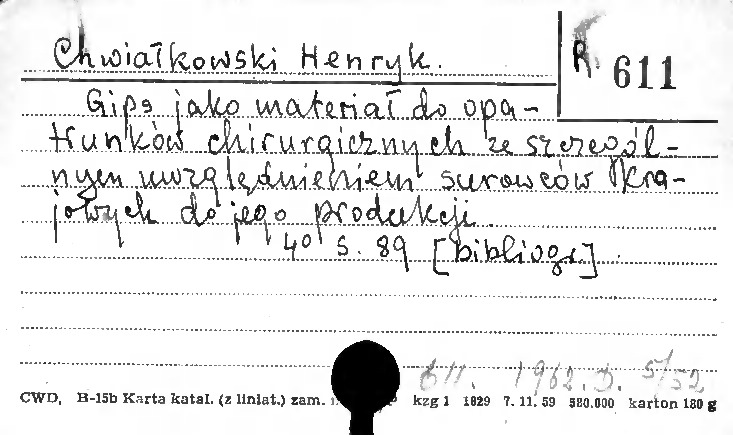 Chwiałkowski Henryk.
R. 611
Gips jako materiał do opa-
trunków chirurgicznych ze szczegól-
nym uwzględnieniem surowców kra-
jowych do jego produkcji.
4° s. 89 [bibliogr.]
611. 1962. D. 5/52
CWD, B-15b Karta katal. (z liniat.) zam. kzg 1 1829 7. 11. 59 580.000 karton 180 g